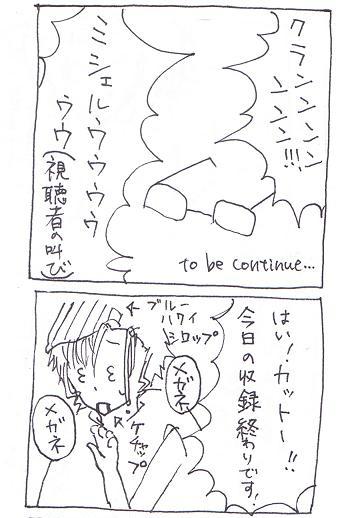 クランンンンン
ンンン!!!
ミシェルウウウウ
ウウ(視聴者の叫び)
to be continue...
はい!カットー!!
今日の収録終わりです!
←ブルー
ハワイ
シロップ
メガネ
ケチャップ
メガネ